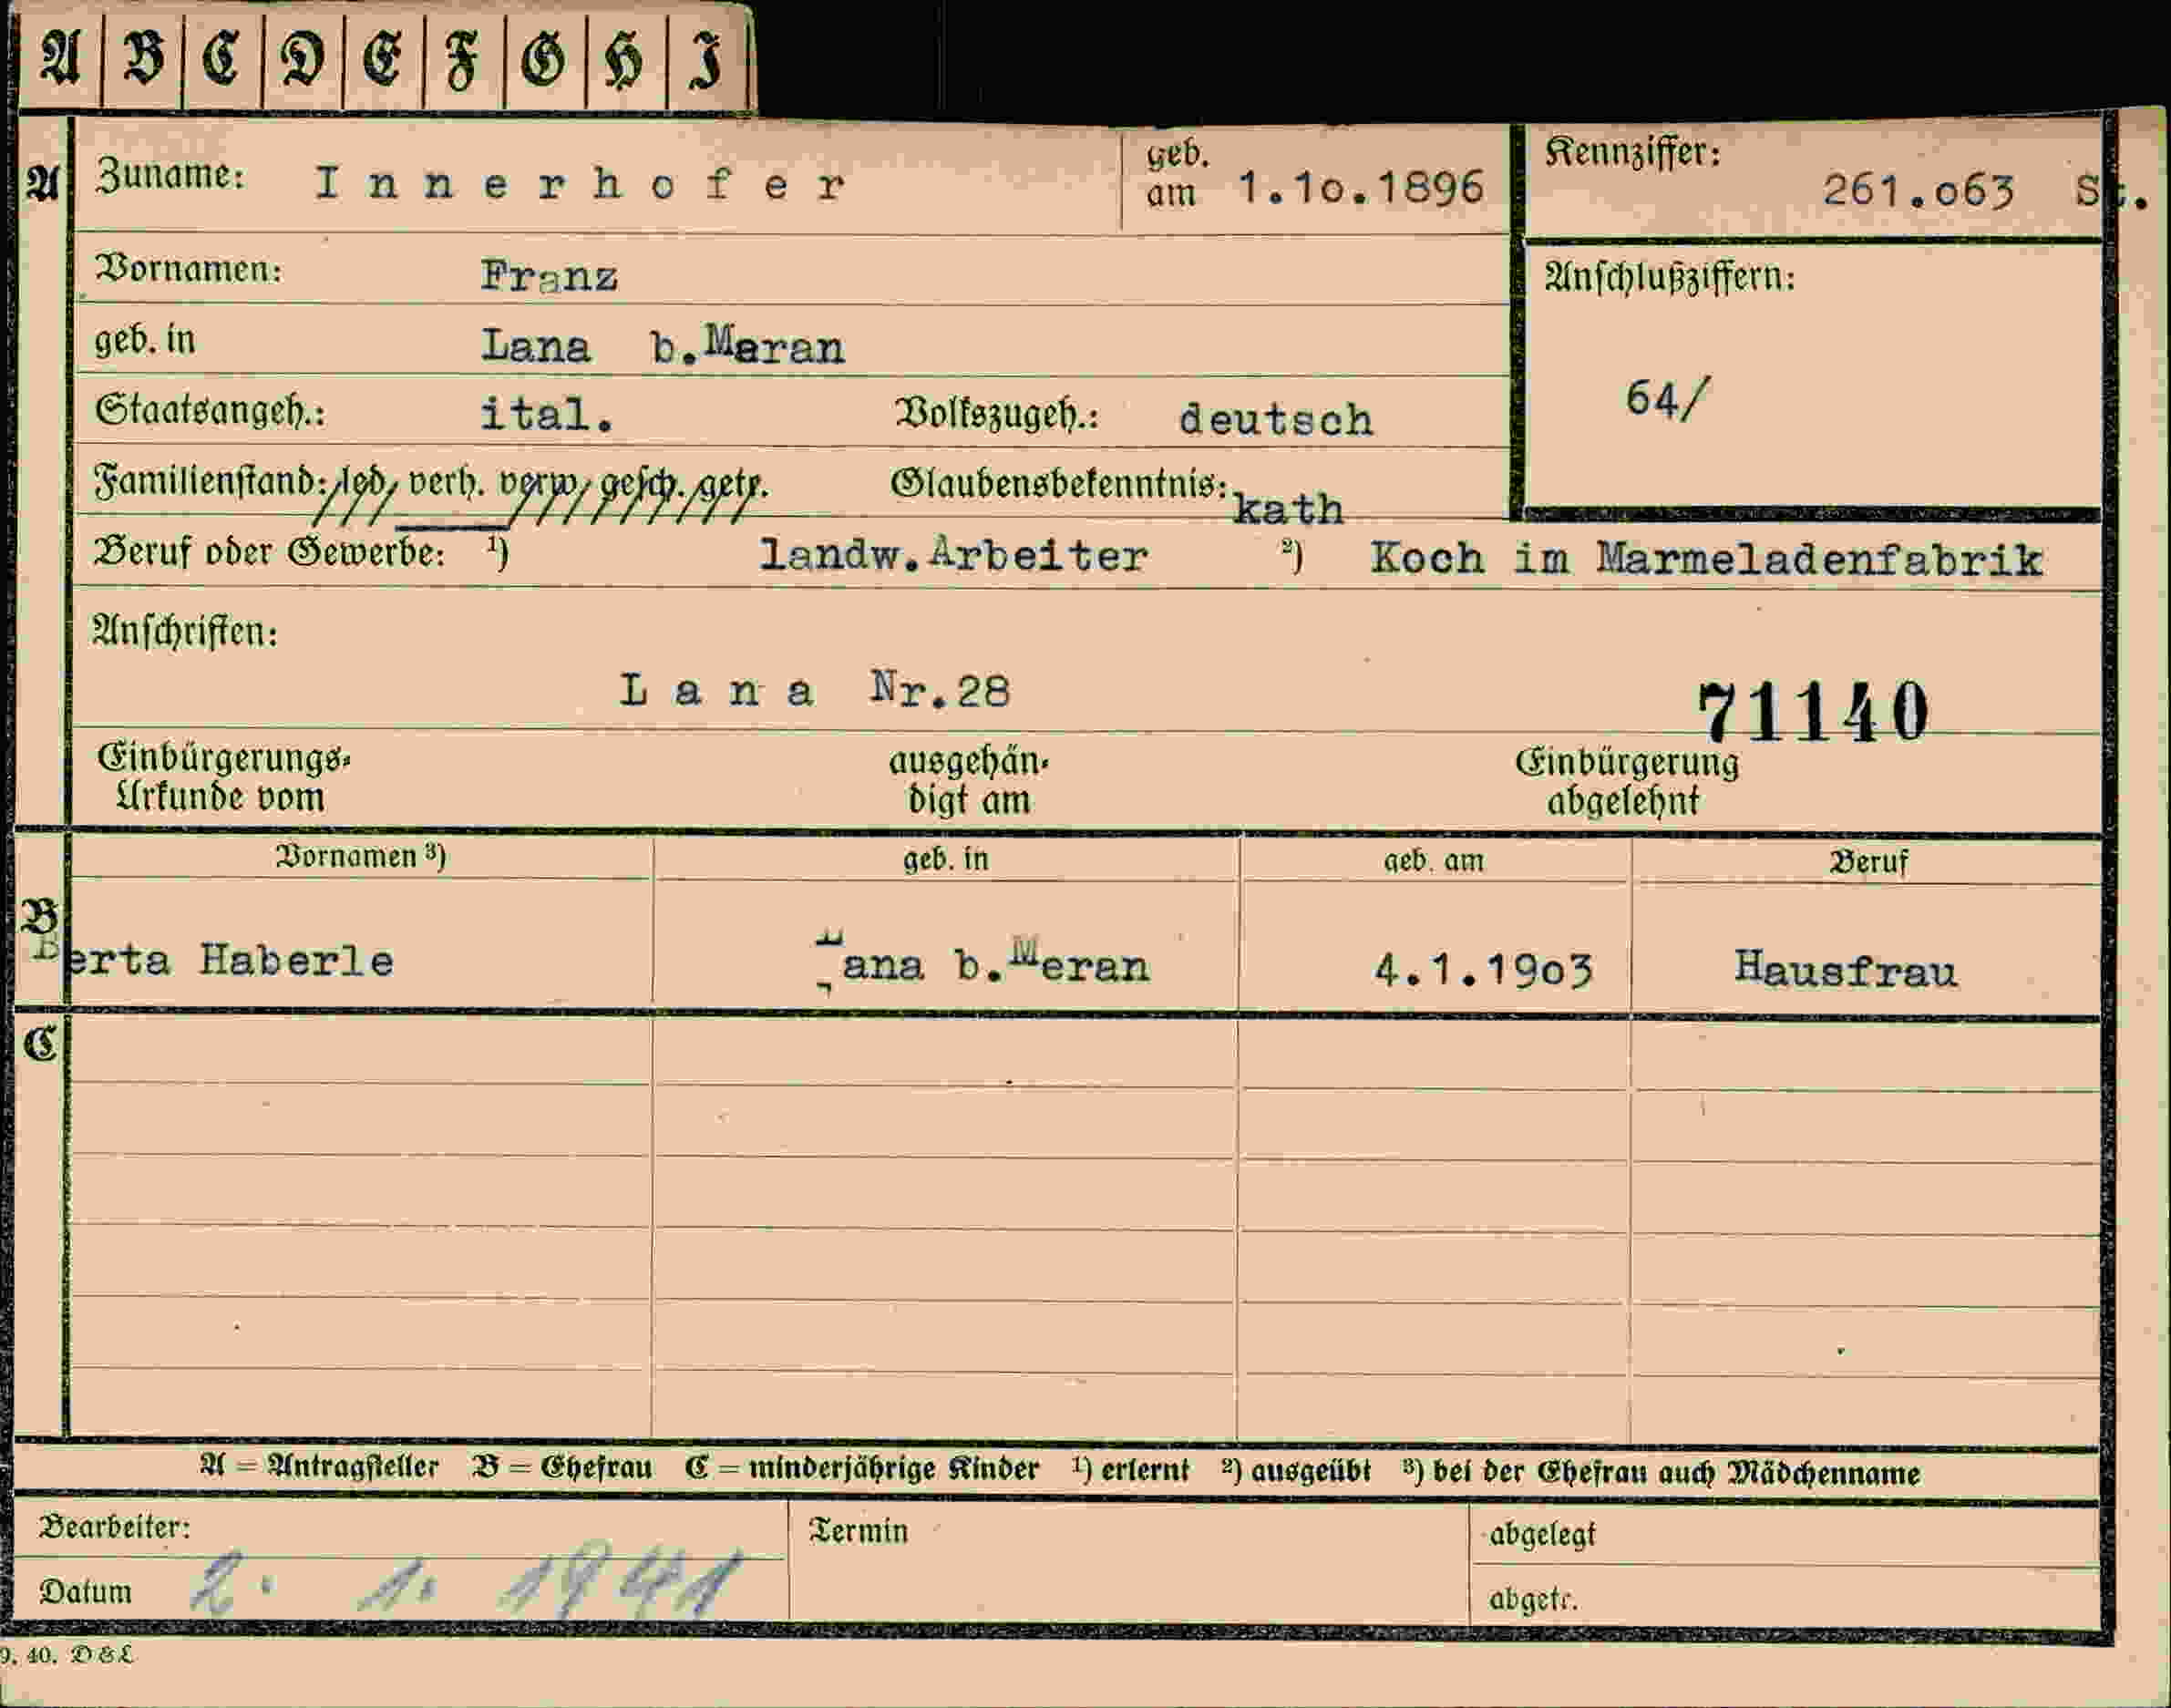 A B C D E F G H I
A Zuname: Innerhofer geb. am 1.1o.1896 Kennziffer: 261.o63 St.
Vornamen: Franz Anschlußziffern:
geb. in Lana b.Meran
64/
Staatsangeh.: ital. Volkszugeh.: deutsch
Familienstand: led. verh. verw. gesch. getr. Glaubensbekenntnis: kath
Beruf oder Gewerbe: 1) landw.Arbeiter 2) Koch im Marmeladenfabrik
Anschriften:
Lana Nr.28 71140
Einbürgerungs- ausgehän- Einbürgerung
Urkunde vom digt am abgelehnt
Vornamen 3) geb. in geb. am Beruf
B
Berta Haberle Lana b.Meran 4.1.19o3 Hausfrau
C
A = Antragsteller B = Ehefrau C = minderjährige Kinder 1) erlernt 2) ausgeübt 3) bei der Ehefrau auch Mädchenname
Bearbeiter: Termin abgelegt
Datum 2. 1. 1941 abgetr.
9. 40. D & L